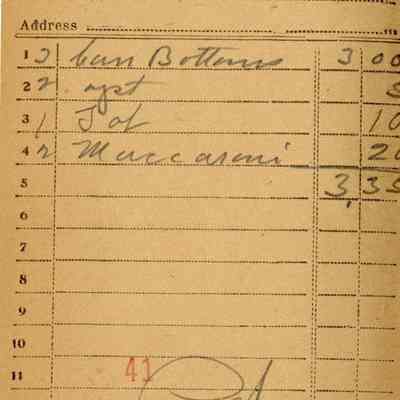 Address
1 3 Can Bottoms 3 00
2 2 5
3 1 10
4 2 Maccaroni 20
5 3,35
6
7
8
9
10
41
11